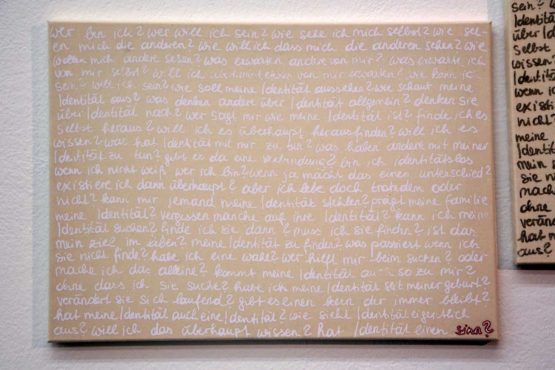 wer bin ich? wer will ich sein? wie sehe ich mich selbst? wie seh-
en mich die anderen? wie will ich dass mich die anderen sehen? wie
wollen mich andere sehen? was erwarten andere von mir? was erwarte ich
von mir selbst? will ich etwas von mir erwarten? wie kann ich
sein? will ich sein? wie soll meine Identität aussehen? wie schaut meine
Identität aus? was denken andere über Identität allgemein? denken sie
über Identität nach? wer sagt mir wie meine Identität ist? finde ich es
selbst heraus? will ich es überhaupt herausfinden? will ich es
wissen? was hat Identität mit mir zu tun? was haben andere mit meiner
Identität zu tun? gibt es da eine Verbindung? bin ich identitätslos
wenn ich nicht weiß wer ich bin? wenn ja macht das einen unterschied?
existiere ich dann überhaupt? aber ich lebe doch trotzdem oder
nicht? kann mir jemand meine Identität stehlen? prägt meine familie
meine Identität? vergessen manche auf ihre Identität? kann ich meine
Identität suchen? finde ich sie dann? muss ich sie finden? ist das
mein ziel? im leben? meine Identität zu finden? was passiert wenn ich
sie nicht finde? habe ich eine wahl? wer hilft mir beim suchen? oder
mache ich das alleine? kommt meine Identität auch so zu mir?
ohne dass ich sie suche? habe ich meine Identität seit meiner geburt?
verändert sie sich laufend? gibt es einen kern der immer bleibt?
hat meine Identität auch eine Identität? wie sieht Identität eigentlich
aus? will ich das überhaupt wissen? hat Identität einen sinn?
sein?
Identität
über
selbst
wissen?
Identität
wenn ich
nicht?
meine
Identität
mein
sie nicht
mache
ohne
verändert
hat meine
aus?